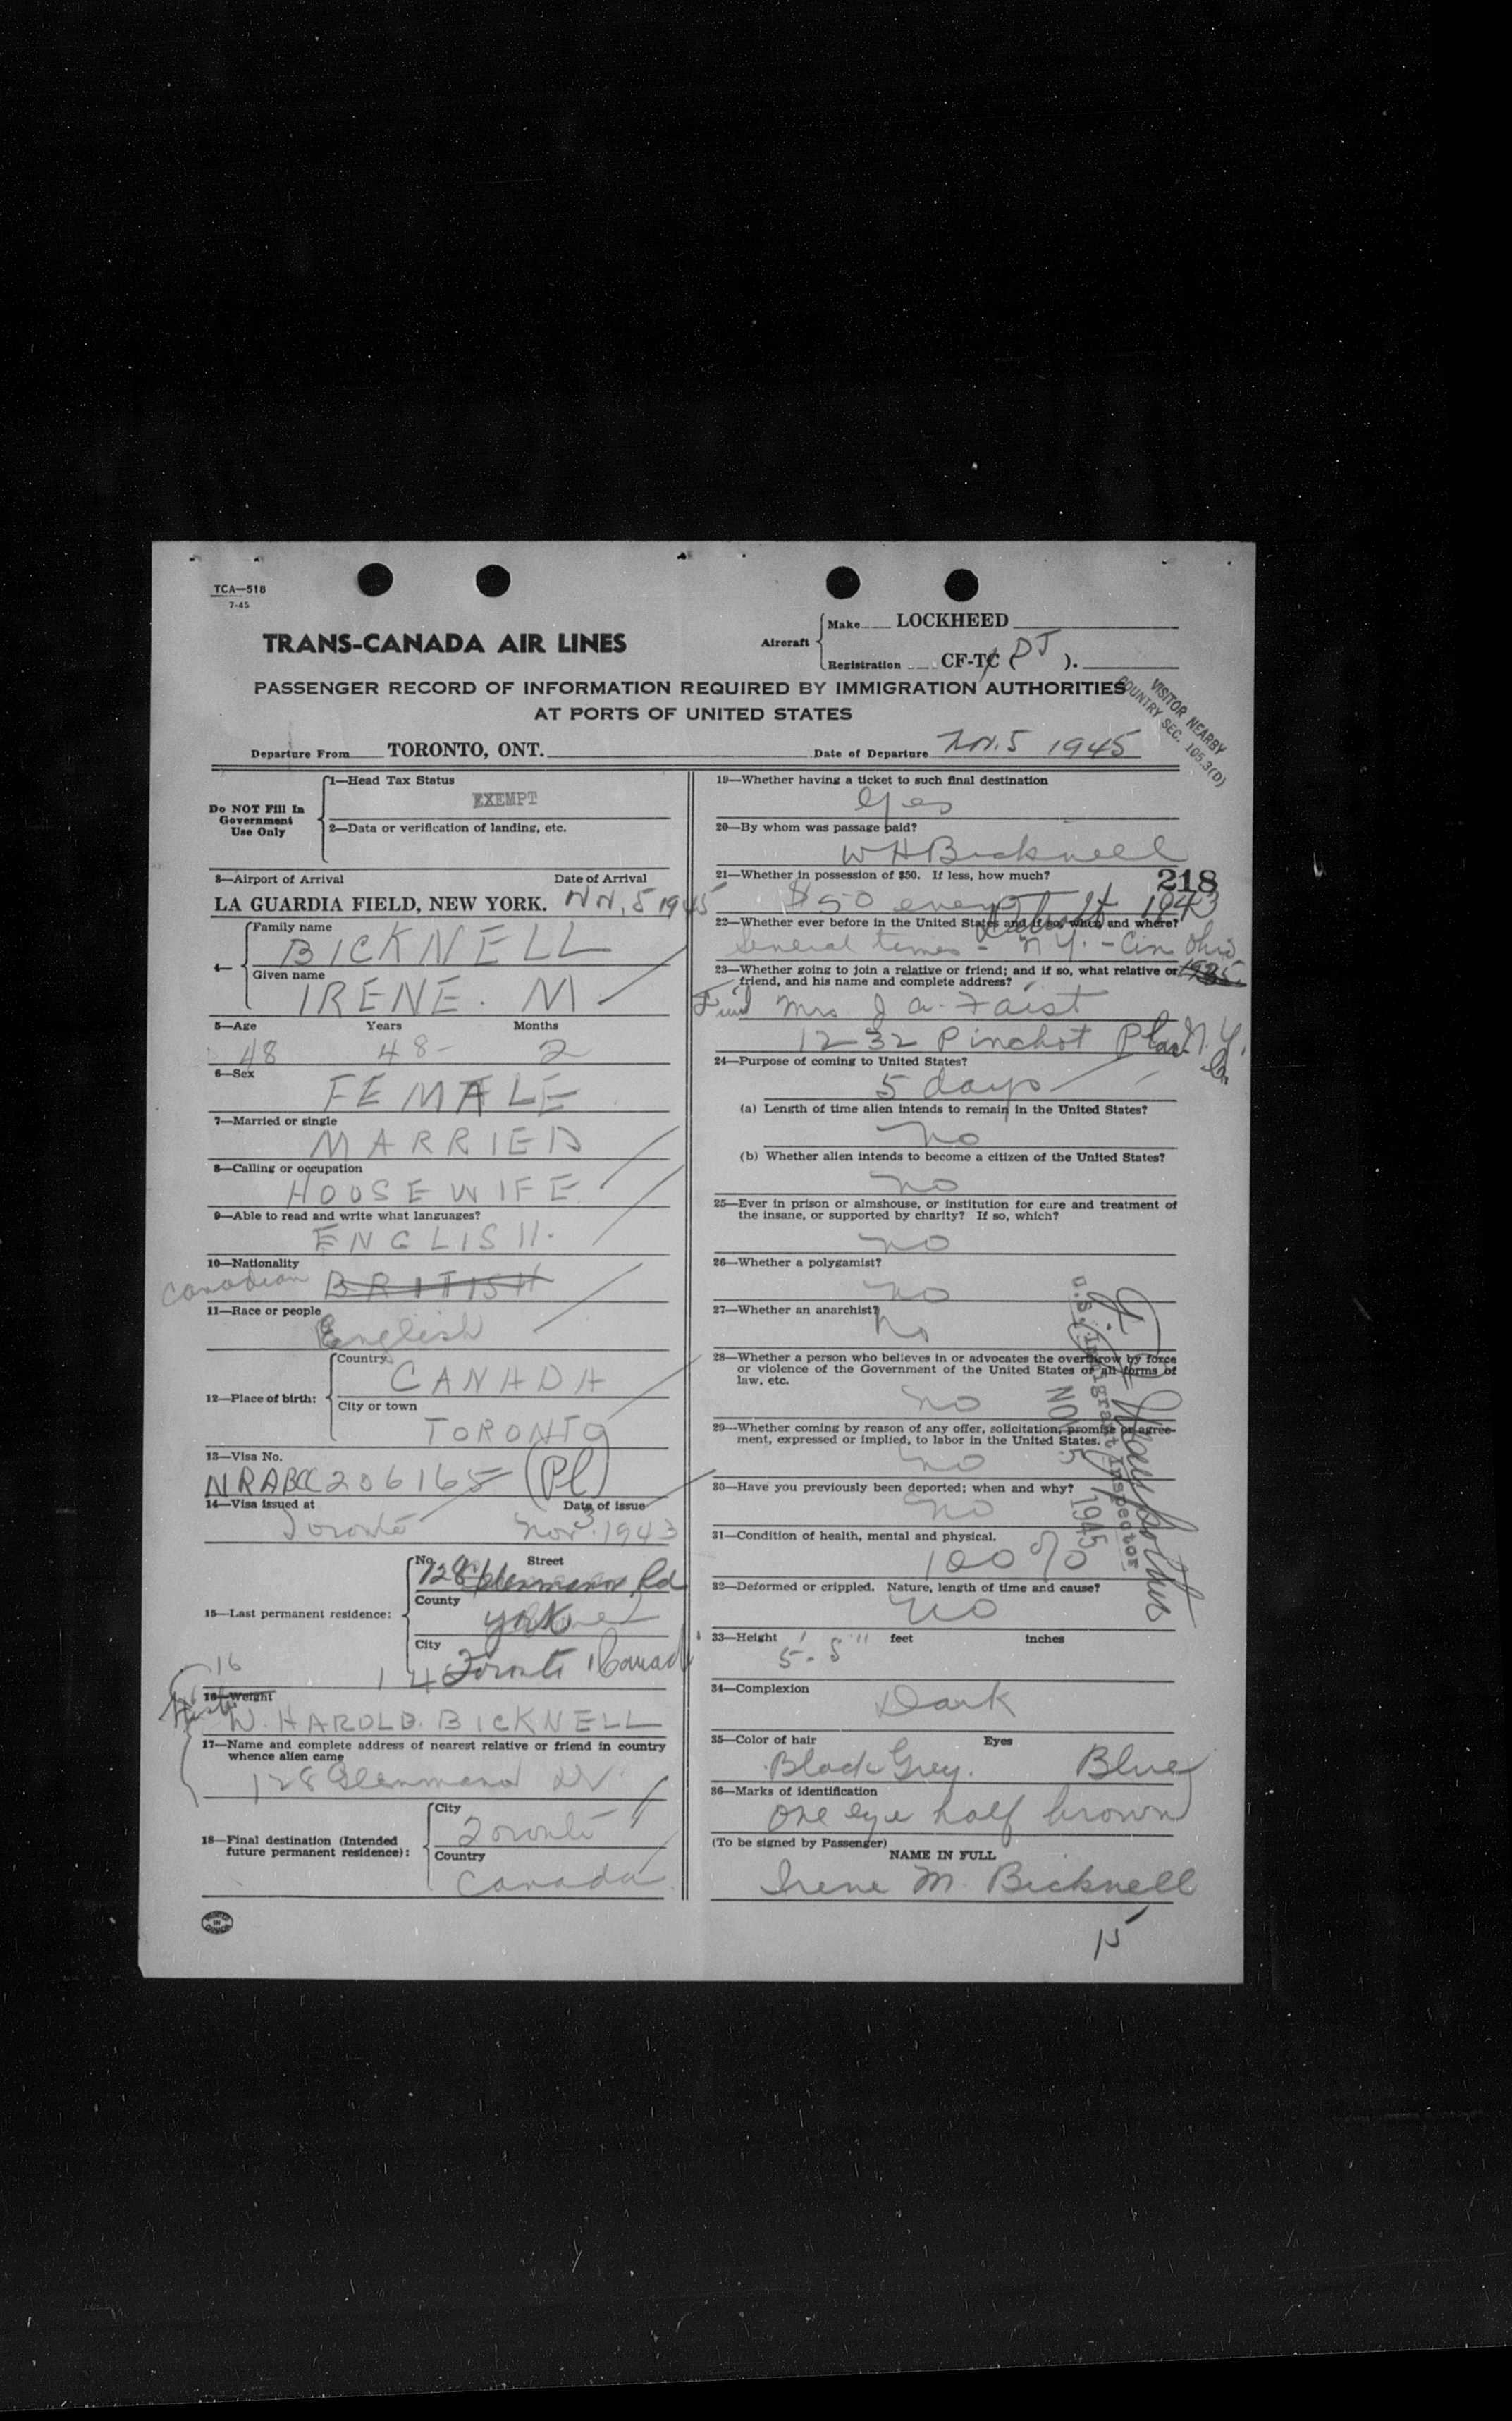 TCA—518
7-45
TRANS-CANADA AIR LINES
Aircraft
Make LOCKHEED
Registration CF-TC ( DJ ).
PASSENGER RECORD OF INFORMATION REQUIRED BY IMMIGRATION AUTHORITIES
AT PORTS OF UNITED STATES
VISITOR NEARBY
COUNTRY SEC. 105.3(D)
Departure From TORONTO, ONT. Date of Departure Nov. 5 1945
Do NOT Fill In
Government
Use Only
1—Head Tax Status
EXEMPT
2—Data or verification of landing, etc.
3—Airport of Arrival Date of Arrival
LA GUARDIA FIELD, NEW YORK. Nov. 5 1945
4—
Family name
BICKNELL
Given name
IRENE. M
5—Age Years Months
48 48 - 2
6—Sex
FEMALE
7—Married or single
MARRIED
8—Calling or occupation
HOUSEWIFE
9—Able to read and write what languages?
ENGLISH.
10—Nationality
Canadian BRITISH
11—Race or people
English
12—Place of birth:
Country
CANADA
City or town
TORONTO
13—Visa No.
NRABCC 206165 (Pl)
14—Visa issued at Date of issue
Toronto Nov 3 1943
15—Last permanent residence:
No. Street
128 Rd
County
York
City
Toronto Canada
16
16—Weight
W. HAROLD. BICKNELL
17—Name and complete address of nearest relative or friend in country
whence alien came
128
18—Final destination (Intended
future permanent residence):
City
Toronto
Country
Canada
19—Whether having a ticket to such final destination
Yes
20—By whom was passage paid?
W H Bicknell
21—Whether in possession of $50. If less, how much?
218
$50 1943
22—Whether ever before in the United States and if so, when and where?
Several times - N.Y. - Cin Ohio
23—Whether going to join a relative or friend; and if so, what relative or
friend, and his name and complete address?
Friend Mrs J A. Faist
1232 Pinchot Place N.Y.
24—Purpose of coming to United States?
5 days
(a) Length of time alien intends to remain in the United States?
No
(b) Whether alien intends to become a citizen of the United States?
no
25—Ever in prison or almshouse, or institution for care and treatment of
the insane, or supported by charity? If so, which?
no
26—Whether a polygamist?
no
27—Whether an anarchist?
no
28—Whether a person who believes in or advocates the overthrow by force
or violence of the Government of the United States or all forms of
law, etc.
no
29—Whether coming by reason of any offer, solicitation, promise or agree-
ment, expressed or implied, to labor in the United States.
no
30—Have you previously been deported; when and why?
no
31—Condition of health, mental and physical.
100%
32—Deformed or crippled. Nature, length of time and cause?
no
33—Height feet inches
5' - 5"
34—Complexion
Dark
35—Color of hair Eyes
Black Grey. Blue
36—Marks of identification
One eye half brown
(To be signed by Passenger)
NAME IN FULL
Irene M. Bicknell
U.S. Immigrant Inspector
NOV 5 1945
15